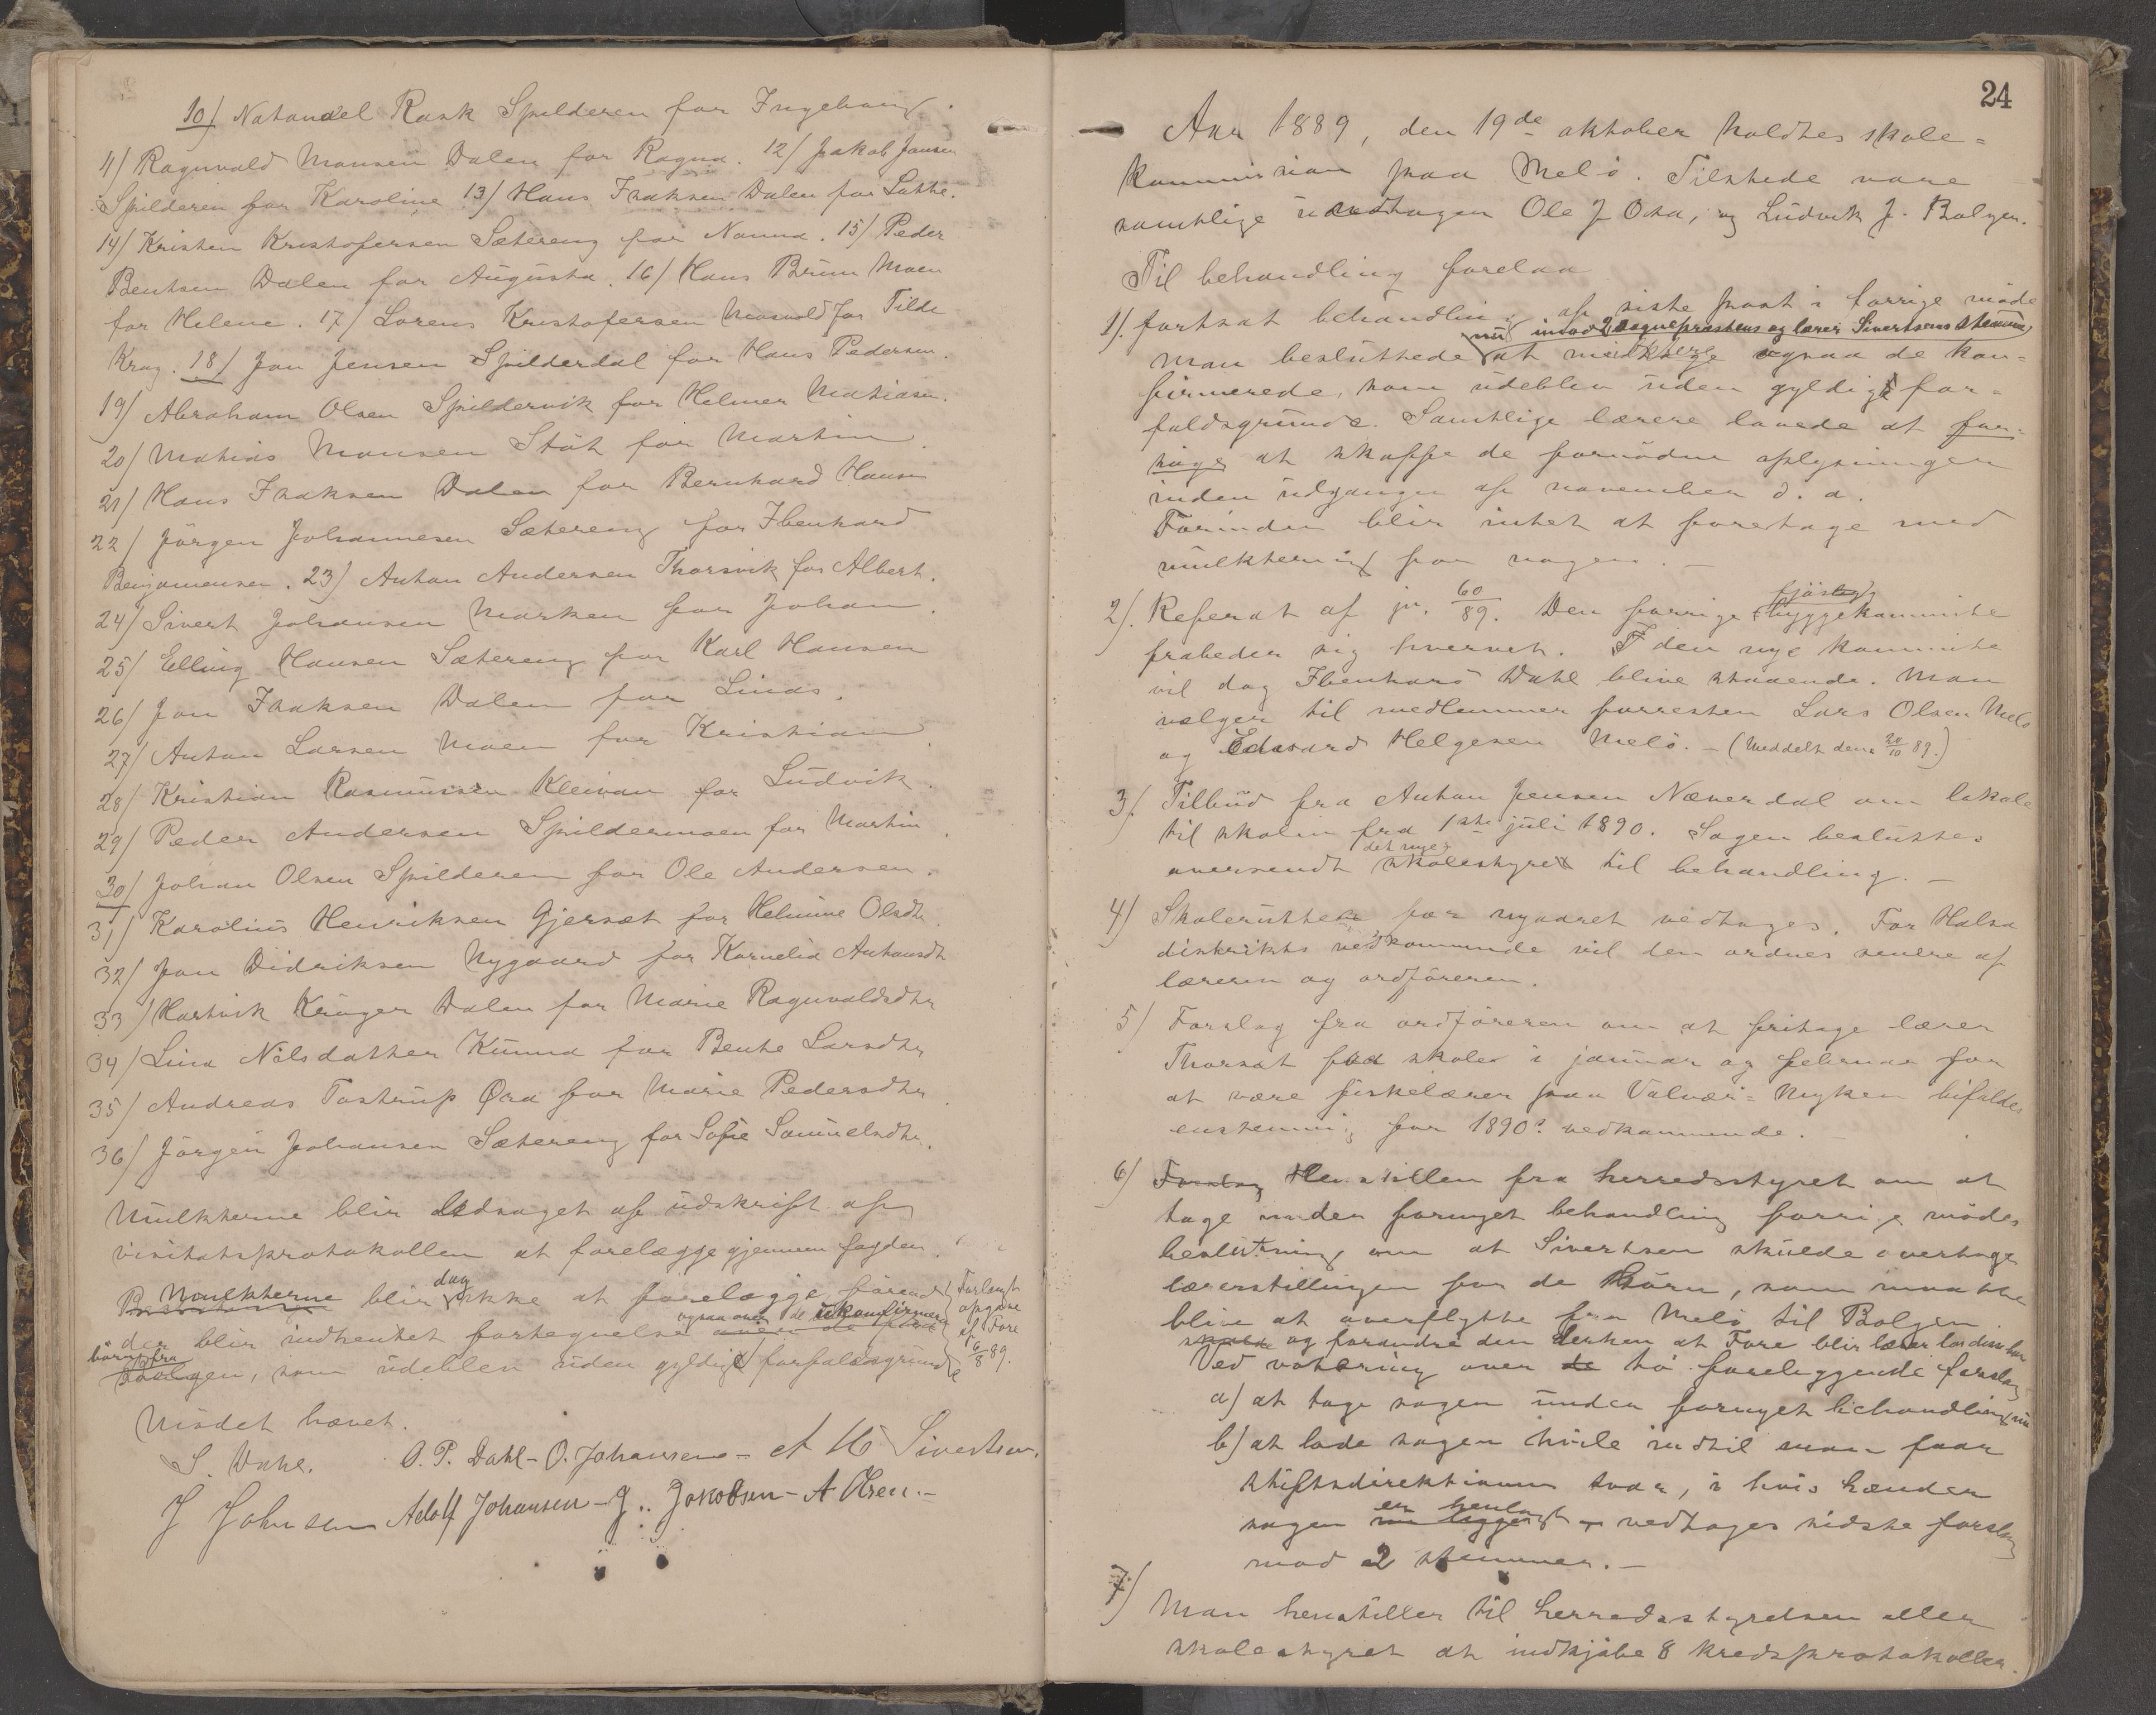 10/ Natanael Rask Spilderen for Ingeborg.
11/ Ragnvald Monsen Dalen for Ragna. 12/ Jakob Jansen
Spilderen for Karoline 13/ Hans Isaksen Dalen for Lotte.
14/ Kristen Kristofersen Sætereng for Nanna. 15/ Peder
Bentsen Dalen for Augusta. 16/ Hans Bruun Moen
for Helene. 17/ Lorens Kristofersen Mosvold for Tilde
Krog. 18/ Jon Jensen Spilderdal for Hans Pedersen.
19/ Abraham Olsen Spildervik for Helmer Matiasen.
20/ Matias Monsen Stöt for Martin.
21/ Hans Isaksen Dalen for Bernhard Hansen
22/ Jörgen Johannesen Sætereng for Ibenhard
Benjamensen. 23/ Anton Andersen Thorsvik for Albert.
24/ Sivert Johansen Marken for Johan.
25/ Elling Hansen Sætereng for Karl Hansen
26/ Jon Isaksen Dalen for Linas.
27/ Anton Larsen Moen for Kristian.
28/ Kristian Rasmussen Kleivan for Ludvik.
29/ Peder Andersen Spildermoen for Martin.
30/ Johan Olsen Spilderen for Ole Andersen.
31/ Karolius Henriksen Gjersæt for Helmine Olsdtr.
32/ Jon Didriksen Nygaard for Kornelia Antonsdtr
33/ Hartvik Krüger Dalen for Marie Ragnvaldsdtr
34/ Lina Nilsdatter Kunna for Bente Larsdtr
35/ Andreas Tostrup Øra for Marie Pedersdtr.
36/ Jörgen Johansen Sætereng for Sofie Samuelsdtr.
Mulkterne blir ledsaget af udskrift af
visitatsprotokollen at forelægge gjennem fogden.
Mulkterne blir dog ikke at forelægge, förend
der blir indhentet fortegnelse ogsaa over de ukonfirmerede
börn fra
Bolgen, som udeblev uden gyldig forfaldsgrund
Forlangt
opgave
af Fore
16/8 89.
Mödet hævet.
S. Dahl. O. P. Dahl - O. Johansen - A M Sivertsen.
J Johnsen Adolf Johansen - J. Jakobsen - A Kren. -
24
Aar 1889, den 19de oktober holdtes skole-
kommission paa Melö. Tilstede vare
samtlige undtagen Ole J Osa, og Ludvik J. Bolgen.
Til behandling forelaa
1/. fortsat behandling af siste post i forrige möde
nu imod 2 sognepræstens og lærer Sivertsens stemme
Man besluttede at medtage ogsaa de kon-
firmerede, som udeblev uden gyldig for-
faldsgrunde. Samtlige lærere lovede at for-
söge at skaffe de fornödne oplysninger
inden udgangen af november d. a.
Forinden blir intet at foretage med
mulktering for nogen. -
2/. Referat af jr. 60/89. Den forrige fjösbyggekommite
frabeder sig hvervet. I den nye kommite
vil dog Ibenhard Dahl blive staaende. Man
vælger til medlemmer forresten Lars Olsen Melö
og Edvard Helgesen Melö. - (Meddelt dem 20/10 89.)
3/. Tilbud fra Anton Jensen Næverdal om lokale
til skolen fra 1ste juli 1890. Sagen besluttes
oversendt det nye skolestyre til behandling. -
4/ Skoleruten for nyaaret vedtages. For Halsa
distrikts vedkommende vil den ordnes senere af
læreren og ordföreren.
5/ Forslag fra ordföreren om at fritage lærer
Thorsæt fra skolen i januar og februar for
at være fiskelærer paa Valvær-Myken bifaldes
enstemmig for 1890s vedkommende. -
6/ Forslag Henstillen fra herredsstyret om at
tage under fornyet behandling forrige mödes
beslutning om at Sivertsen skulde overtage
lærerstillingen for de börn, som maatte
blive at overflytte fra Melö til Bolgen
og forandre den derhen at Fore blir lærer for disse börn
Ved votering over to foreliggende forslag
a) at tage sagen under fornyet behandling nu
b) at lade sagen hvile indtil man faar
stiftsdirektionens svar, i hvis hænder
sagen er henlagt - vedtages sidste forslag
mod 2 stemmer. -
7/ Man henstiller til herredsstyrelsen eller
skolestyret at indkjöbe 8 kredsprotokoller.